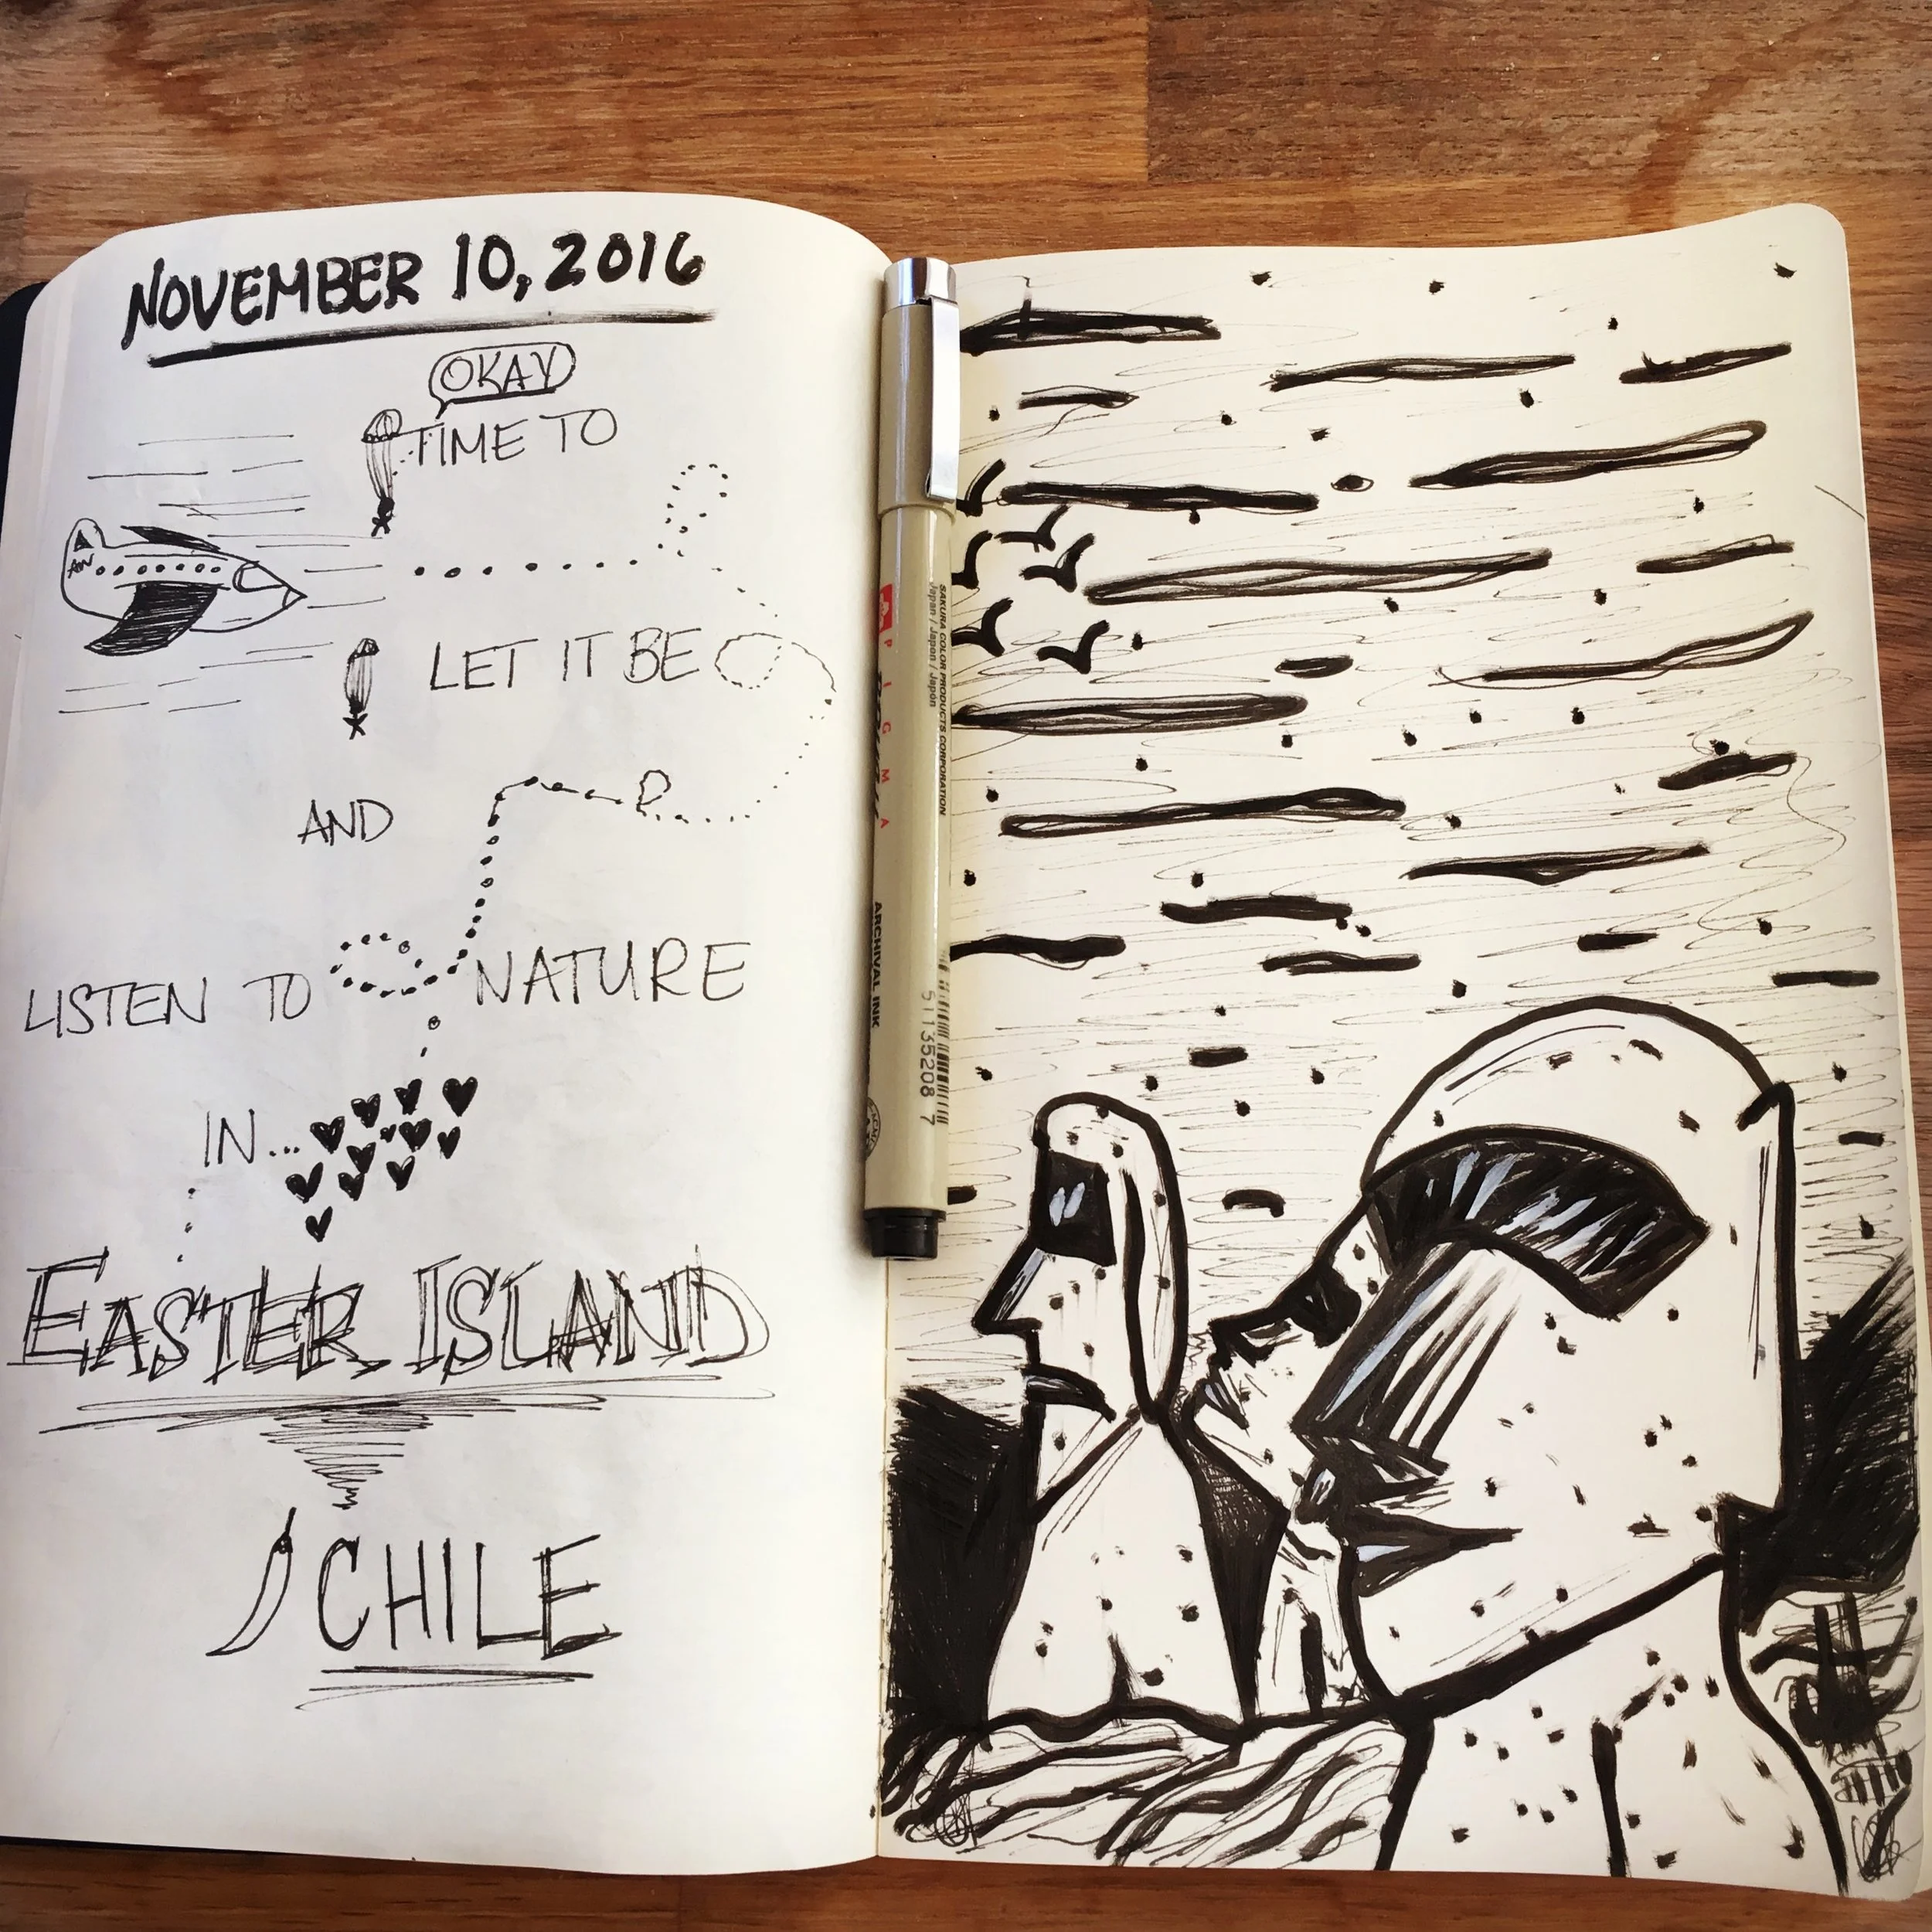 NOVEMBER 10, 2016
OKAY
TIME TO
AN
LET IT BE
AND
LISTEN TO NATURE
IN...
EASTER ISLAND
CHILE
SAKURA COLOR PRODUCTS CORPORATION
Japan / Japon / Japón
PIGMA
ARCHIVAL INK
511352087